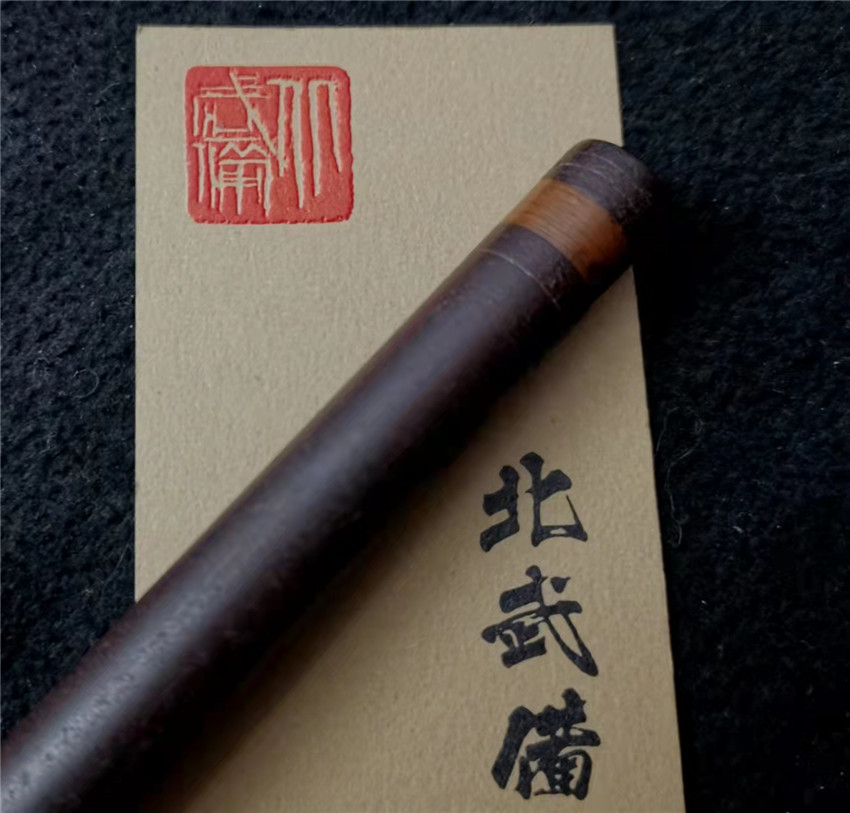 北武備
北武備